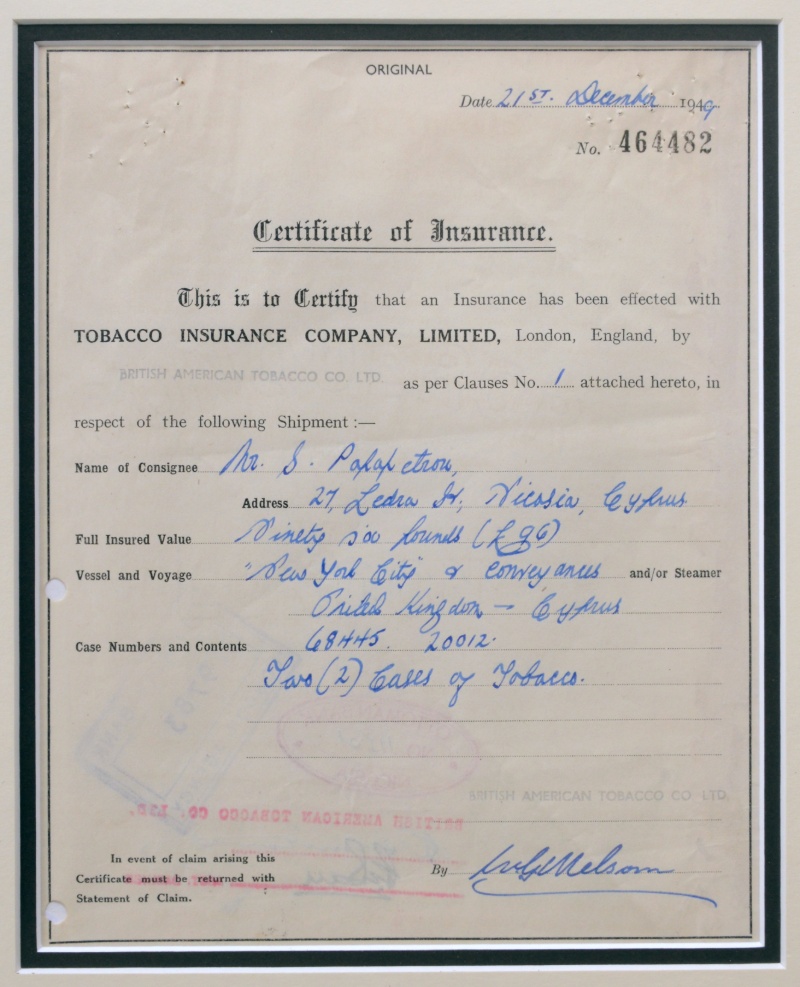 ORIGINAL
Date 21ST. December 1949
No. 464482
Certificate of Insurance.
This is to Certify that an Insurance has been effected with
TOBACCO INSURANCE COMPANY, LIMITED, London, England, by
BRITISH AMERICAN TOBACCO CO. LTD.
as per Clauses No. 1 attached hereto, in
respect of the following Shipment :—
Name of Consignee Mr. S. Papapetrou,
Address 27, Ledra St, Nicosia, Cyprus
Full Insured Value Ninety six pounds (£96)
Vessel and Voyage "New York City" & conveyances and/or Steamer
United Kingdom — Cyprus
Case Numbers and Contents 68445. 20012.
Two (2) Cases of Tobacco.
BRITISH AMERICAN TOBACCO CO LTD.
BRITISH AMERICAN TOBACCO CO. LTD.
In event of claim arising this
Certificate must be returned with
Statement of Claim.
By